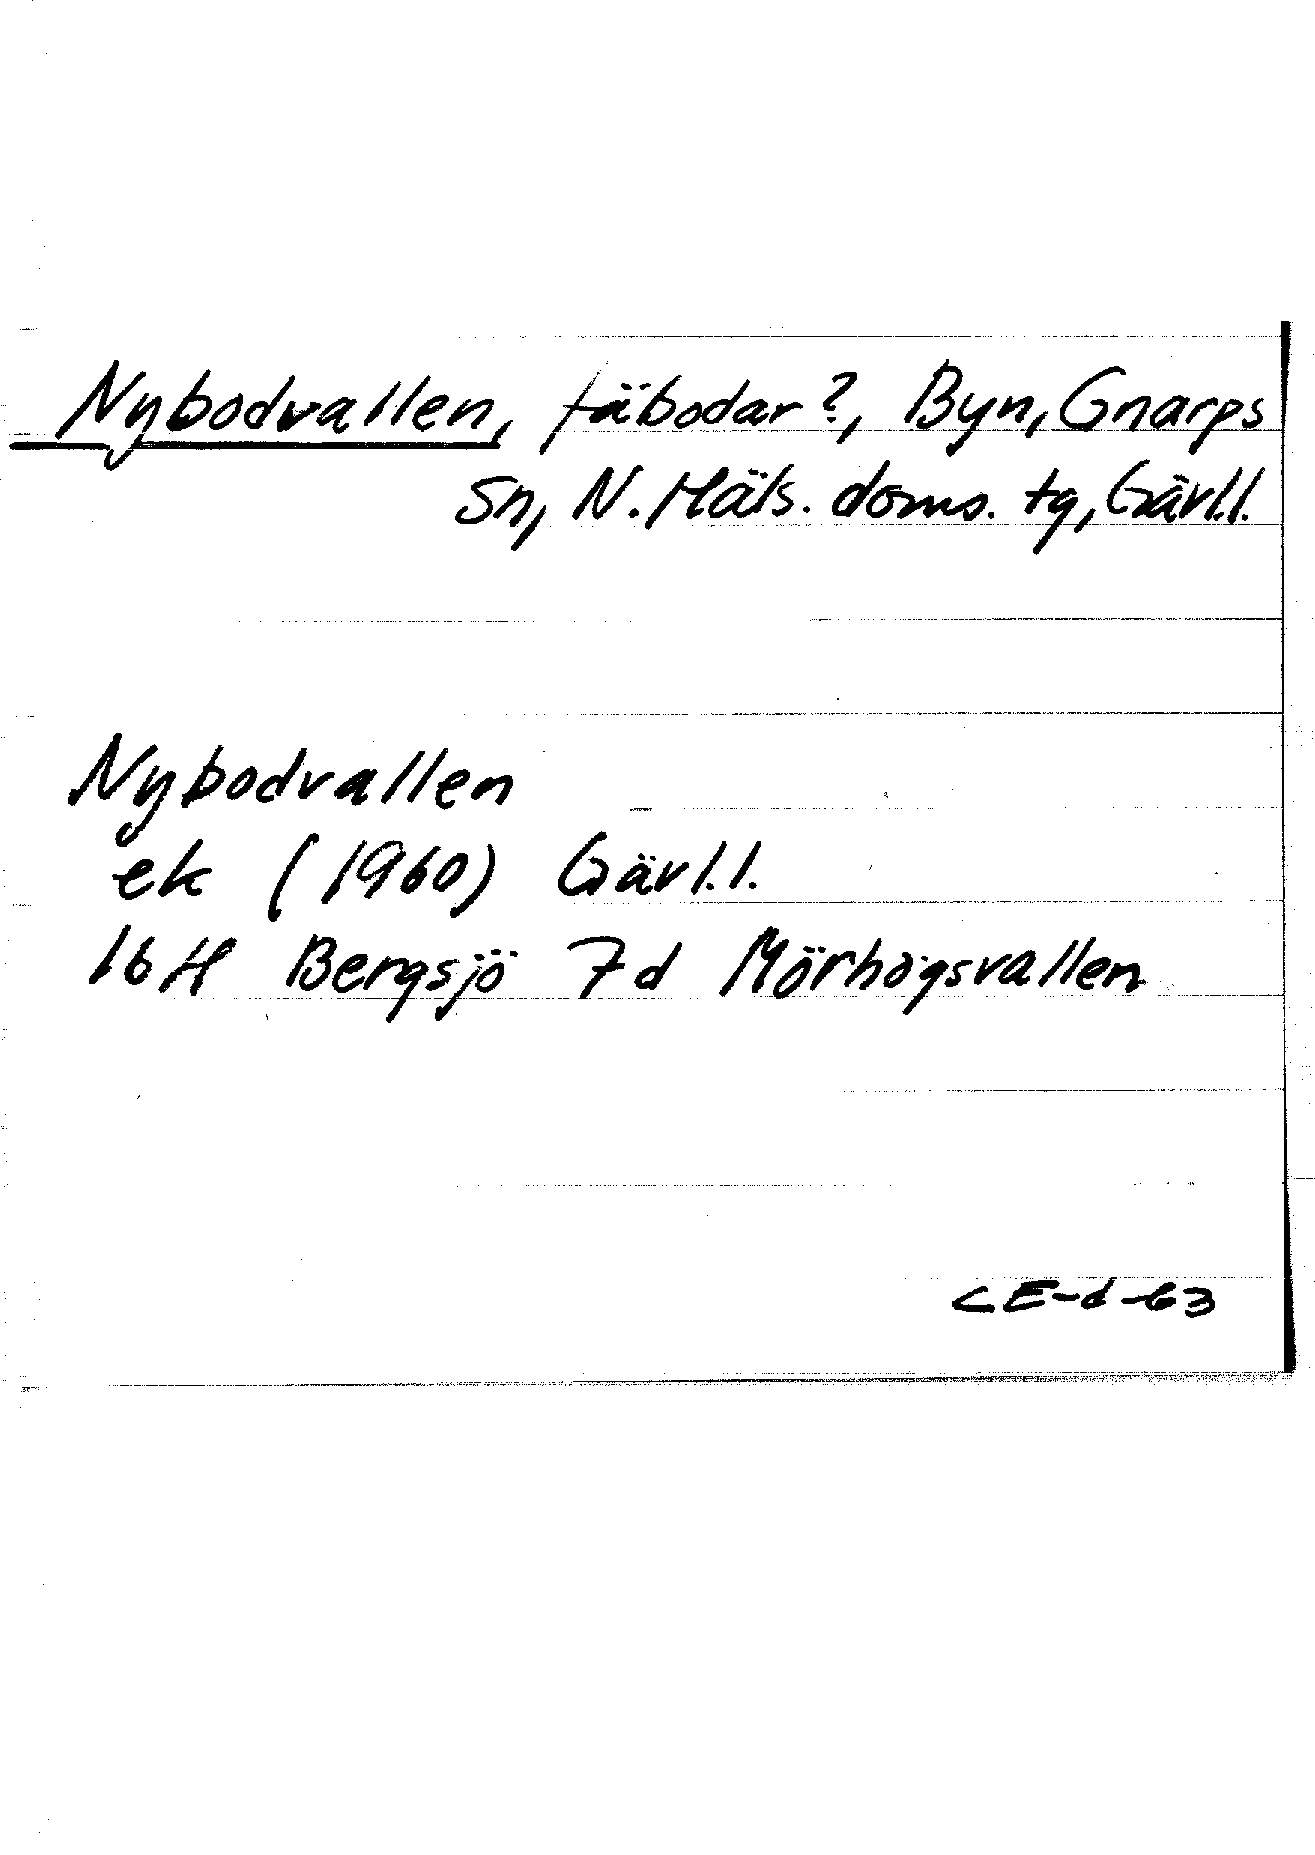 Nybodvallen, fäbodar?, Byn, Gnarps
Sn, N. Häls. doms. tg, Gävl.l.
Nybodvallen
ek (1960) Gävl.l.
16H Bergsjö 7d Mörhögsvallen
CE-d-63